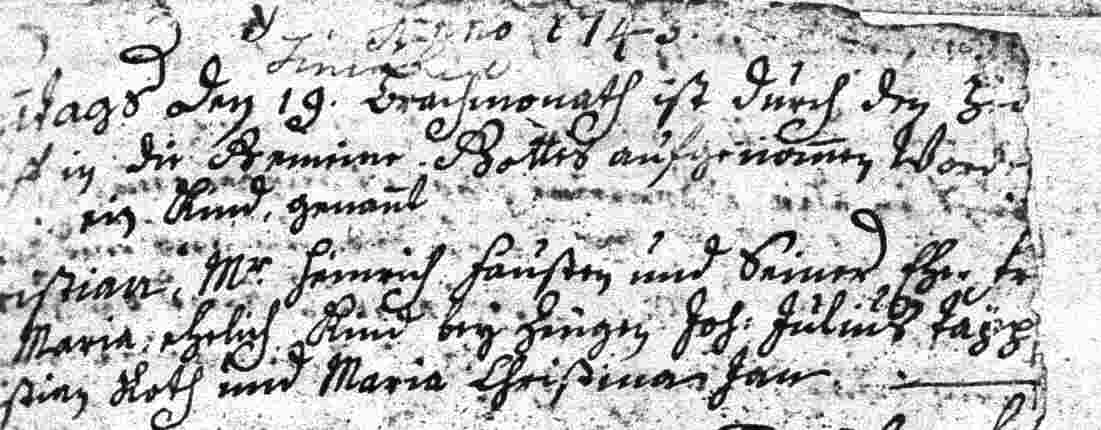 Anno 1743.
tags den 19. Brachmonath ist durch den
in die Gemeine Gottes aufgenom̄en Word
ein Kind, genan̄t
istian, Mr. Heinrich Fausten und Seiner Ehe Fr
Maria, ehelich Kind bey Zeugen Joh: Julius Täpp
stian Roth und Maria Christina Jan